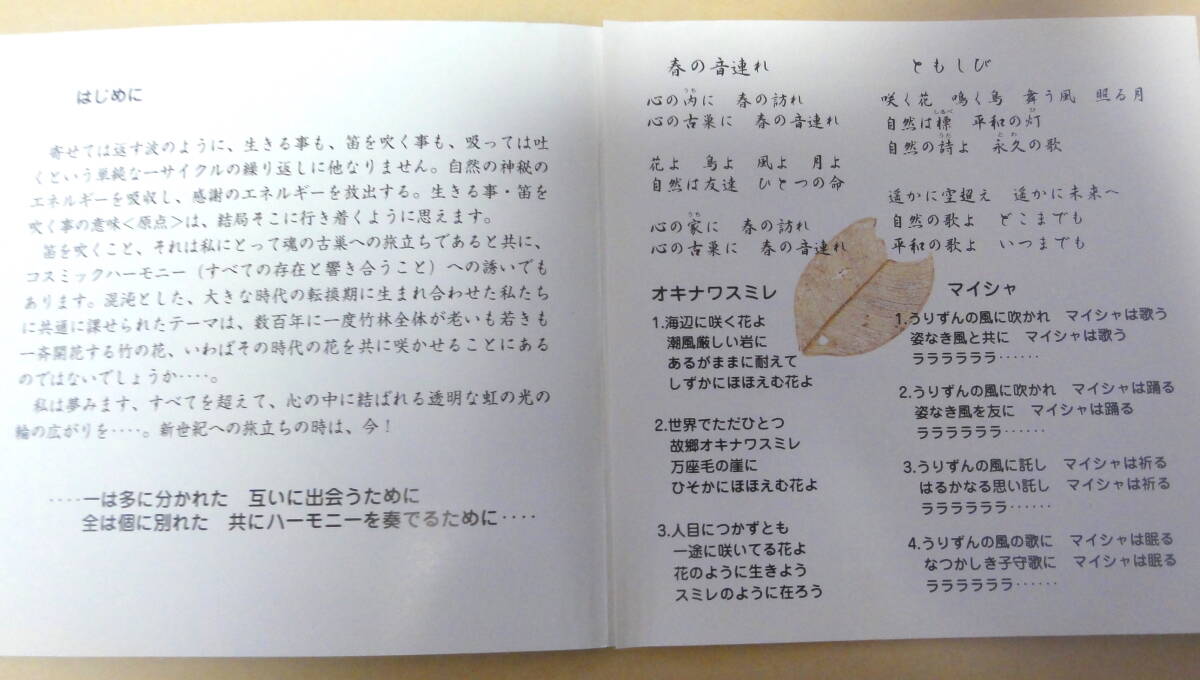 はじめに
寄せては返す波のように、生きる事も、笛を吹く事も、吸っては吐
くという単純な一サイクルの繰り返しに他なりません。自然の神秘の
エネルギーを吸収し、感謝のエネルギーを放出する。生きる事・笛を
吹く事の意味<原点>は、結局そこに行き着くように思えます。
笛を吹くこと、それは私にとって魂の古巣への旅立ちであると共に、
コスミックハーモニー(すべての存在と響き合うこと)への誘いでも
あります。混沌とした、大きな時代の転換期に生まれ合わせた私たち
に共通に課せられたテーマは、数百年に一度竹林全体が老いも若きも
一斉開花する竹の花、いわばその時代の花を共に咲かせることにある
のではないでしょうか‥‥。
私は夢みます、すべてを超えて、心の中に結ばれる透明な虹の光の
輪の広がりを‥‥。新世紀への旅立ちの時は、今!
‥‥一は多に分かれた 互いに出会うために
全は個に別れた 共にハーモニーを奏でるために‥‥
春の音連れ
心の内に 春の訪れ
心の古巣に 春の音連れ
花よ 鳥よ 風よ 月よ
自然は友達 ひとつの命
心の家に 春の訪れ
心の古巣に 春の音連れ
ともしび
咲く花 鳴く鳥 舞う風 照る月
自然は標 平和の灯
自然の詩よ 永久の歌
遥かに空超え 遥かに未来へ
自然の歌よ どこまでも
平和の歌よ いつまでも
オキナワスミレ
1.海辺に咲く花よ
潮風厳しい岩に
あるがままに耐えて
しずかにほほえむ花よ
2.世界でただひとつ
故郷オキナワスミレ
万座毛の崖に
ひそかにほほえむ花よ
3.人目につかずとも
一途に咲いてる花よ
花のように生きよう
スミレのように在ろう
マイシャ
1.うりずんの風に吹かれ マイシャは歌う
姿なき風と共に マイシャは歌う
ラララララララ‥‥‥
2.うりずんの風に吹かれ マイシャは踊る
姿なき風を友に マイシャは踊る
ラララララララ‥‥‥
3.うりずんの風に託し マイシャは祈る
はるかなる思い託し マイシャは祈る
ラララララララ‥‥‥
4.うりずんの風の歌に マイシャは眠る
なつかしき子守歌に マイシャは眠る
ラララララララ‥‥‥